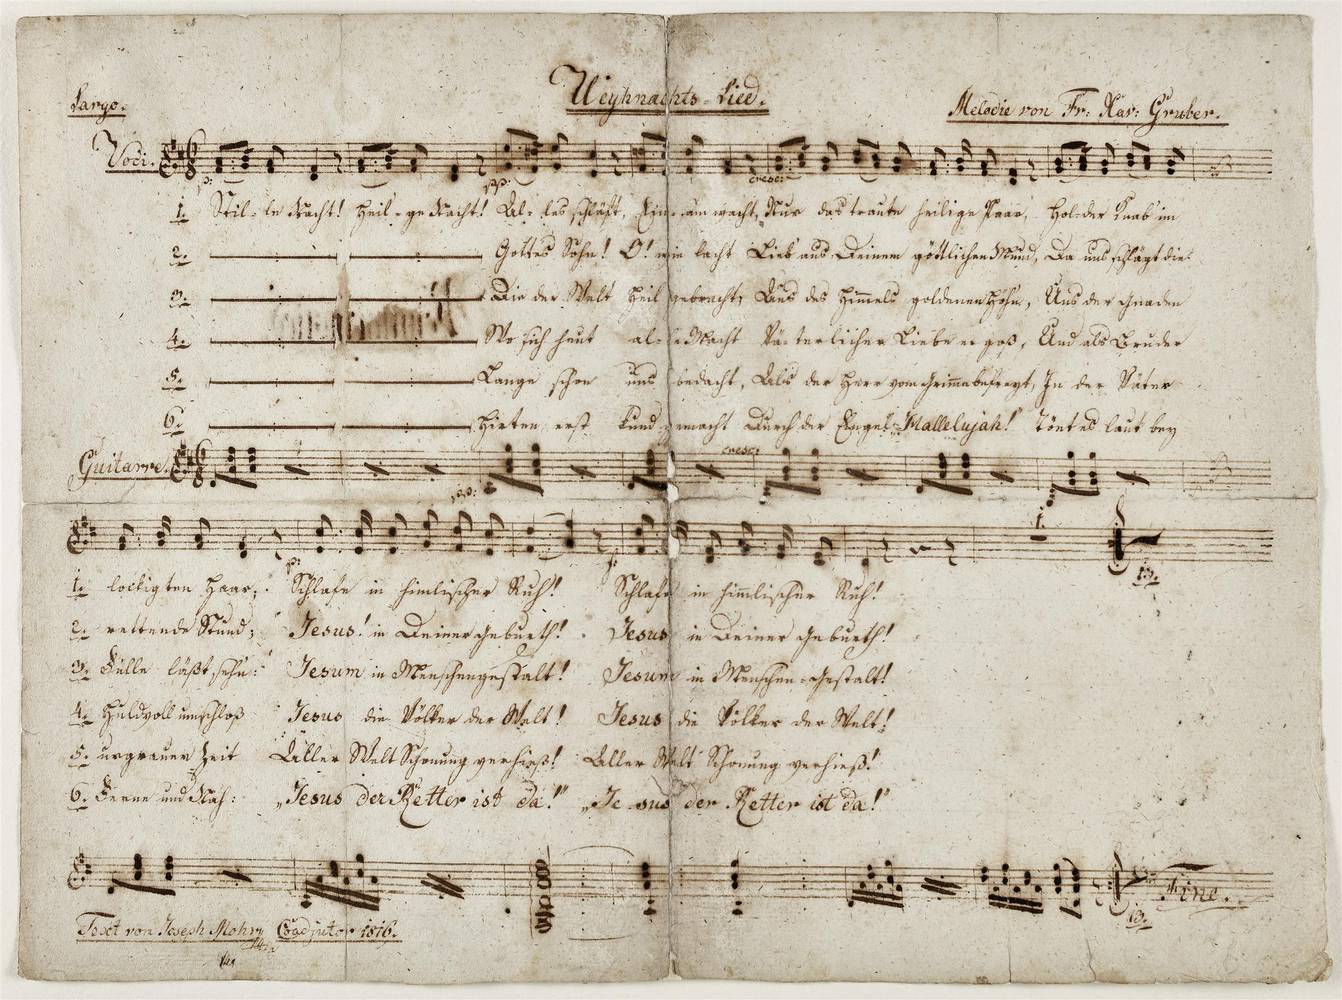 Weyhnachts-Lied.
Largo.
Melodie von Fr: Xav: Gruber.
Voci.
p: pp: cresc:
1. Stil-le Nacht! Heil-ge Nacht! Al-les schläft, Ein-sam wacht, Nur das traute heilige Paar, Hol-der Knab' im
2. Gottes Sohn! O! wie lacht Lieb' aus Deinem göttlichen Mund, Da uns schlägt die
3. Die der Welt Heil gebracht; Aus des Himmels goldenen Höhn, Uns der Gnaden
4. Wo sich heut al-le Macht Vä-terlicher Liebe ergoß, Und als Bruder
5. Lange schon uns bedacht, Als der Herr vom Grimme befreyt, In der Väter
6. Hirten erst kund gemacht Durch der Engel „Hallelujah!" Tönt es laut bey
Guitarre.
cresc:
pp:
p: p: 1.
13.
1. lockigten Haar; Schlafe in himlischer Ruh! Schlafe in himmlischer Ruh!
2. rettende Stund; Jesus! in Deiner Geburth! Jesus in Deiner Geburth!
3. Fülle läßt sehn: Jesum in Menschengestalt! Jesum in Menschen-Gestalt!
4. Huldvoll umschloß Jesus die Völker der Welt! Jesus die Völker der Welt!
5. urgrauer Zeit Aller Welt Schonung verhieß! Aller Welt Schonung verhieß!
6. Ferne und Nah: „Jesus der Retter ist da!" „Je-sus der Retter ist da!"
Fine.
13.
Text von Joseph Mohr Coadjutor 1816.